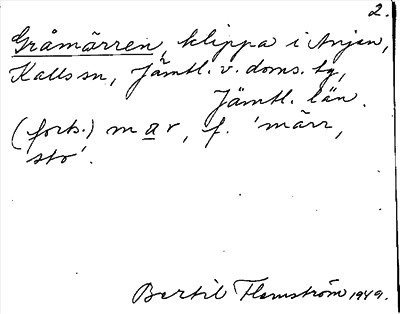 2.
Gråmärren, klippa i Anjan,
Kallssn, Jämtl. v. doms. tg,
Jämtl. län.
(forts.) mar, f. 'märr,
sto'.
Bertil Flemström 1949.